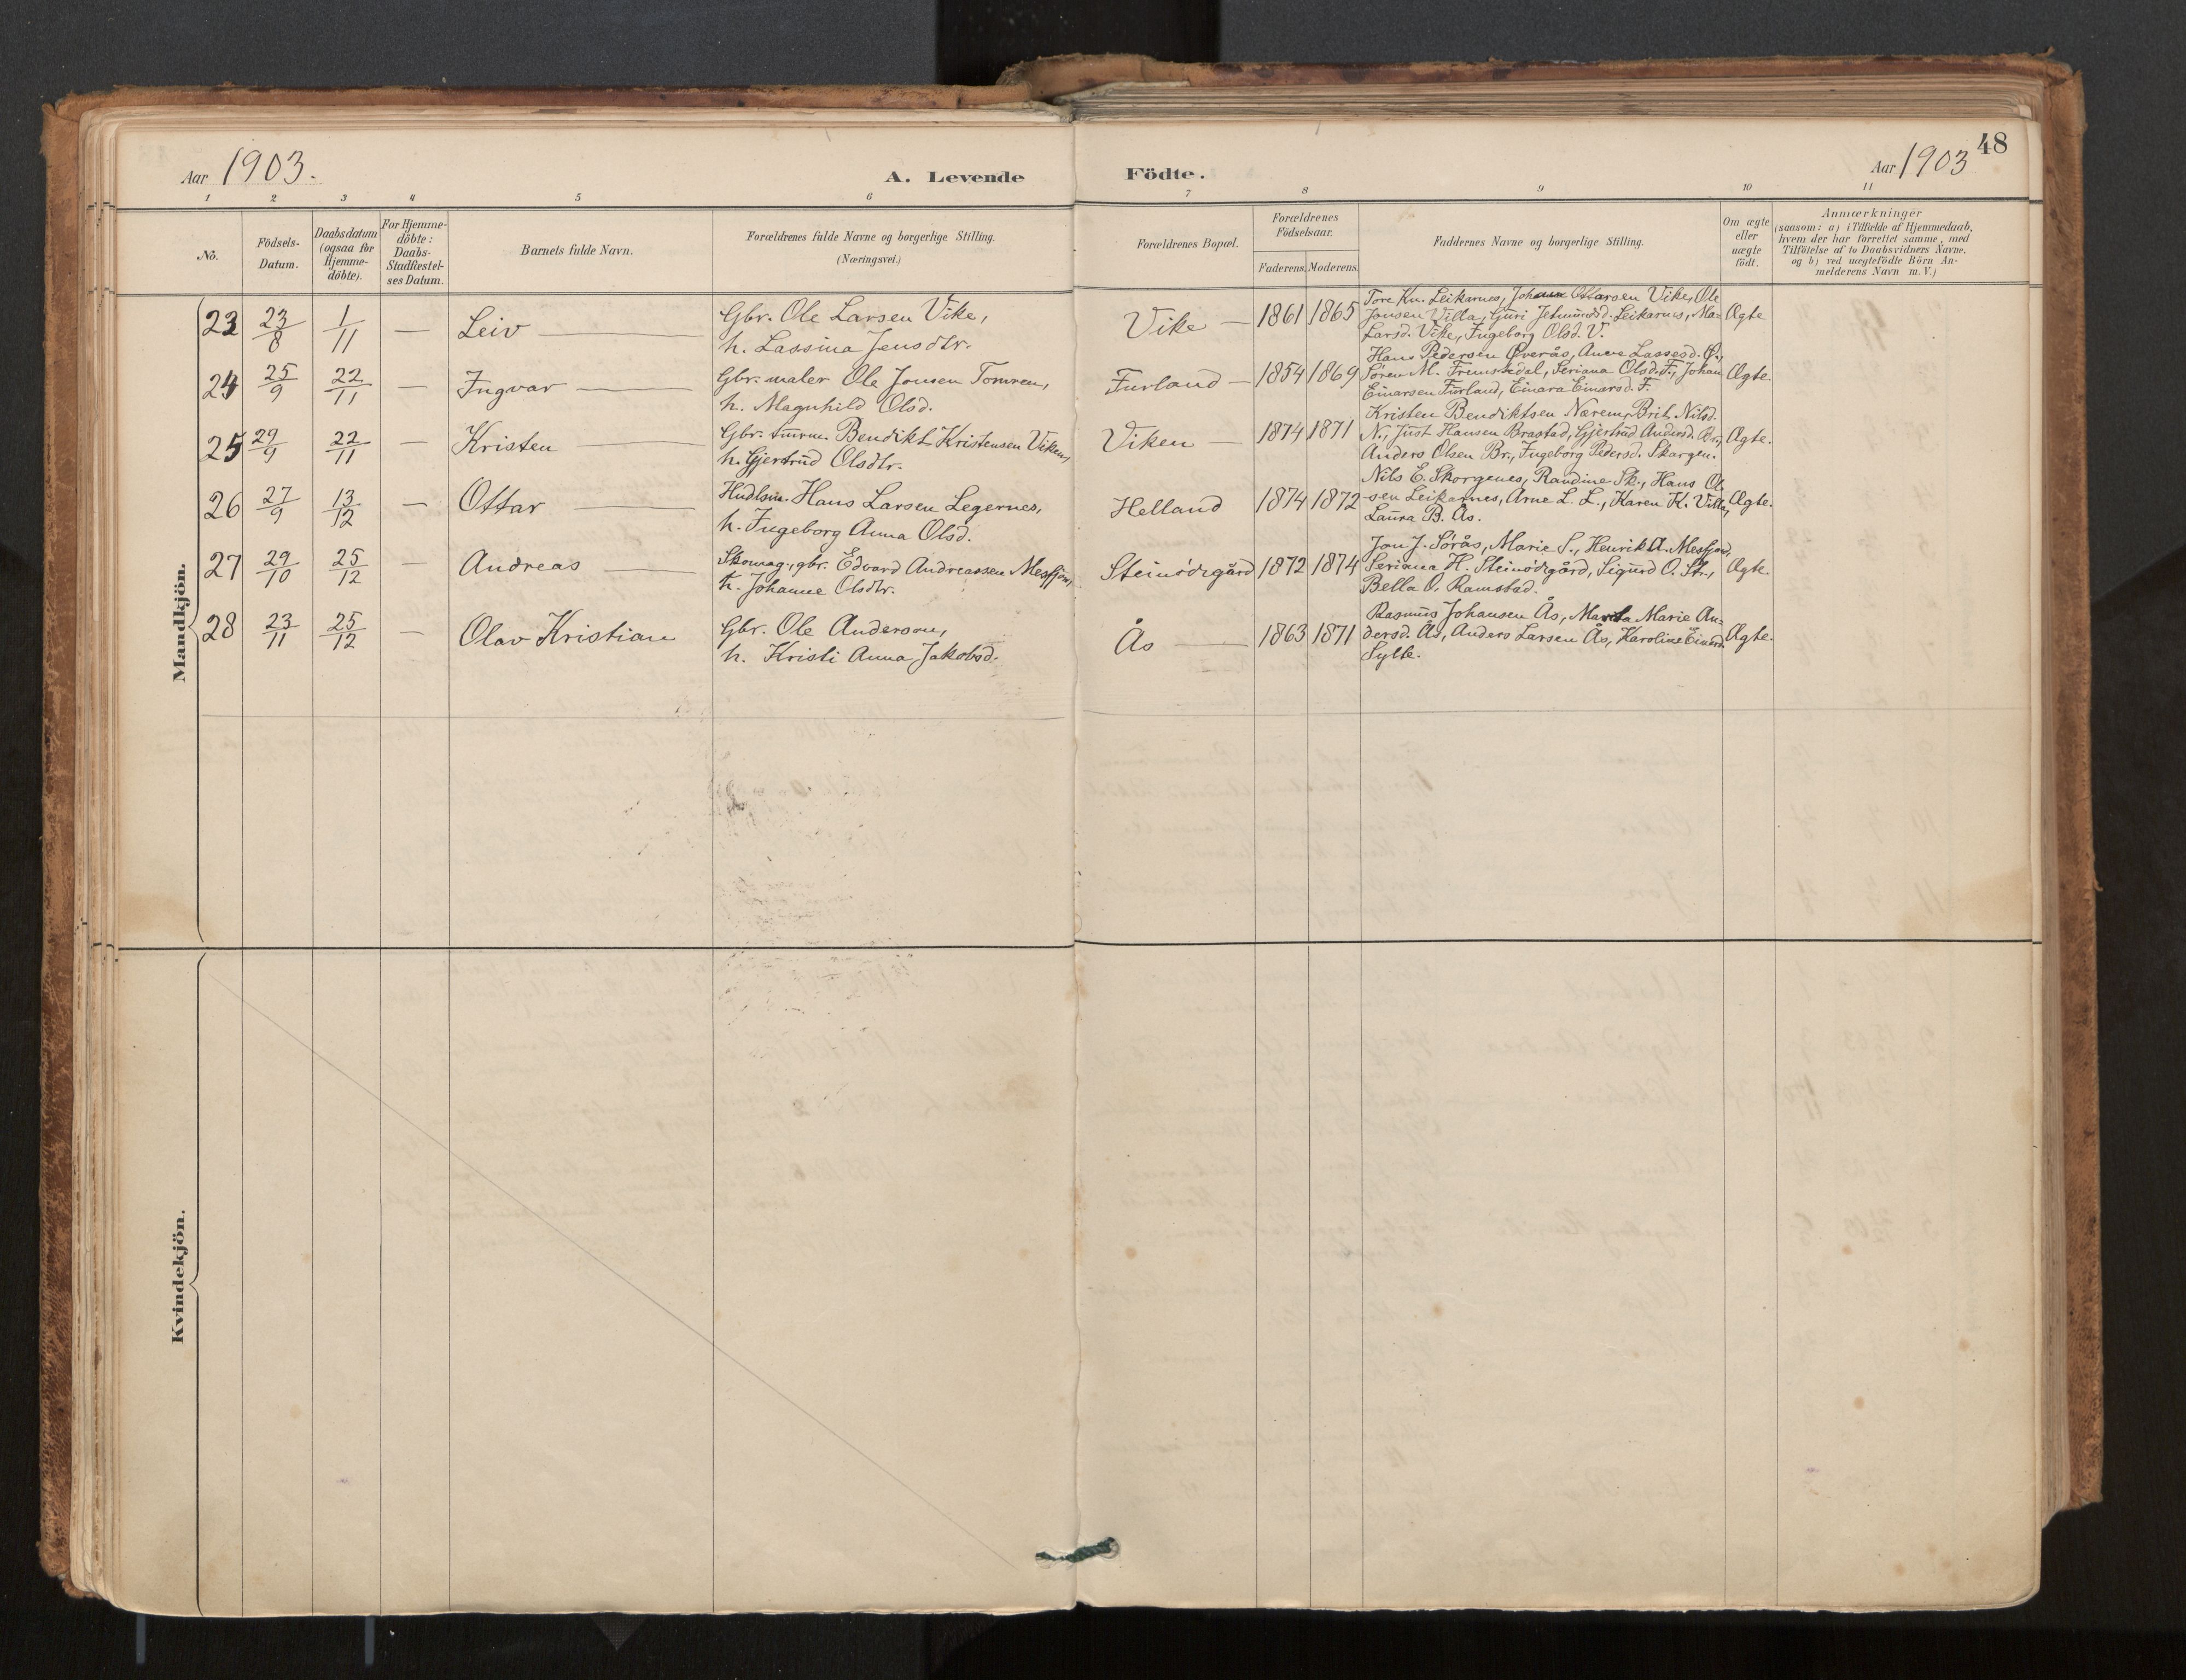 48
Aar 1903.
A. Levende Födte.
Aar 1903
1 2 3 4 5 6 7 8 9 10 11
No.
Födsels-
Datum.
Daabsdatum
(ogsaa for
Hjemme-
döbte).
For Hjemme-
döbte:
Daabs-
Stadfæstel-
ses Datum.
Barnets fulde Navn.
Forældrenes fulde Navne og borgerlige Stilling.
(Næringsvei.)
Forældrenes Bopæl.
Forældrenes
Födselsaar.
Faderens. Moderens.
Faddernes Navne og borgerlige Stilling.
Om ægte
eller
uægte
födt.
Anmærkninger
(saasom: a) i Tilfælde af Hjemmedaab,
hvem der har forrettet samme, med
Tilföielse af to Daabsvidners Navne.
og b) ved uægtefödte Börn An-
melderens Navn m.V.)
Mandkjön.
23 23/8 1/11 — Leiv —
Gbr. Ole Larsen Vike,
h. Lassina Jensdtr.
Vike — 1861 1865
Tore Kn. Leikarnes, Johan Ottarsen Vike, Ole
Jonsen Villa, Guri Jetmundsd. Leikarnes, Ma=
Larsd. Vike, Ingeborg Olsd. V.
Ægte
24 25/9 22/11 — Ingvar —
Gbr. maler Ole Jonsen Tomren,
h. Magnhild Olsd.
Furland — 1854 1869
Hans Pedersen Øverås, Anne Lassesd. Ø.,
Søren M. Fremstedal, Seriana Olsd. F., Johan
Einarsen Furland, Einara Einarsd. F.
Ægte.
25 29/9 22/11 — Kristen —
Gbr. tmrm. Bendikt Kristensen Viken,
h. Gjertrud Olsdtr.
Viken — 1874 1871
Kristen Bendiktsen Nærem, Brit Nilsd.
N., Just Hansen Brastad, Gjertrud Andersd. Br.,
Anders Olsen Br., Ingeborg Pedersd. Skorgen.
Ægte.
26 27/9 13/12 — Ottar —
Hudlsm. Hans Larsen Legernes,
h. Ingeborg Anna Olsd.
Helland 1874 1872
Nils E. Skorgenes, Randine Sk., Hans Ol-
sen Leikarnes, Arne L. L., Karen K. Villa,
Laura B. Ås.
Ægte.
27 29/10 25/12 — Andreas —
Skomag., gbr. Edvard Andreassen Mesfjors,
h. Johanne Olsdtr.
Steinødegård 1872 1874
Jon J. Sørås, Marie S., Henrik A. Mesfjor,
Seriana H. Steinødegård, Sigurd O. Str.,
Bella O. Ramstad.
Ægte.
28 23/11 25/12 — Olav Kristian
Gbr. Ole Anderson,
h. Kristi Anna Jakobsd.
Ås — 1863 1871
Rasmus Johansen Ås, Marta Marie An-
dersd. Ås, Anders Larsen Ås, Karoline Einersd.
Sylte.
Ægte.
Kvindekjön.